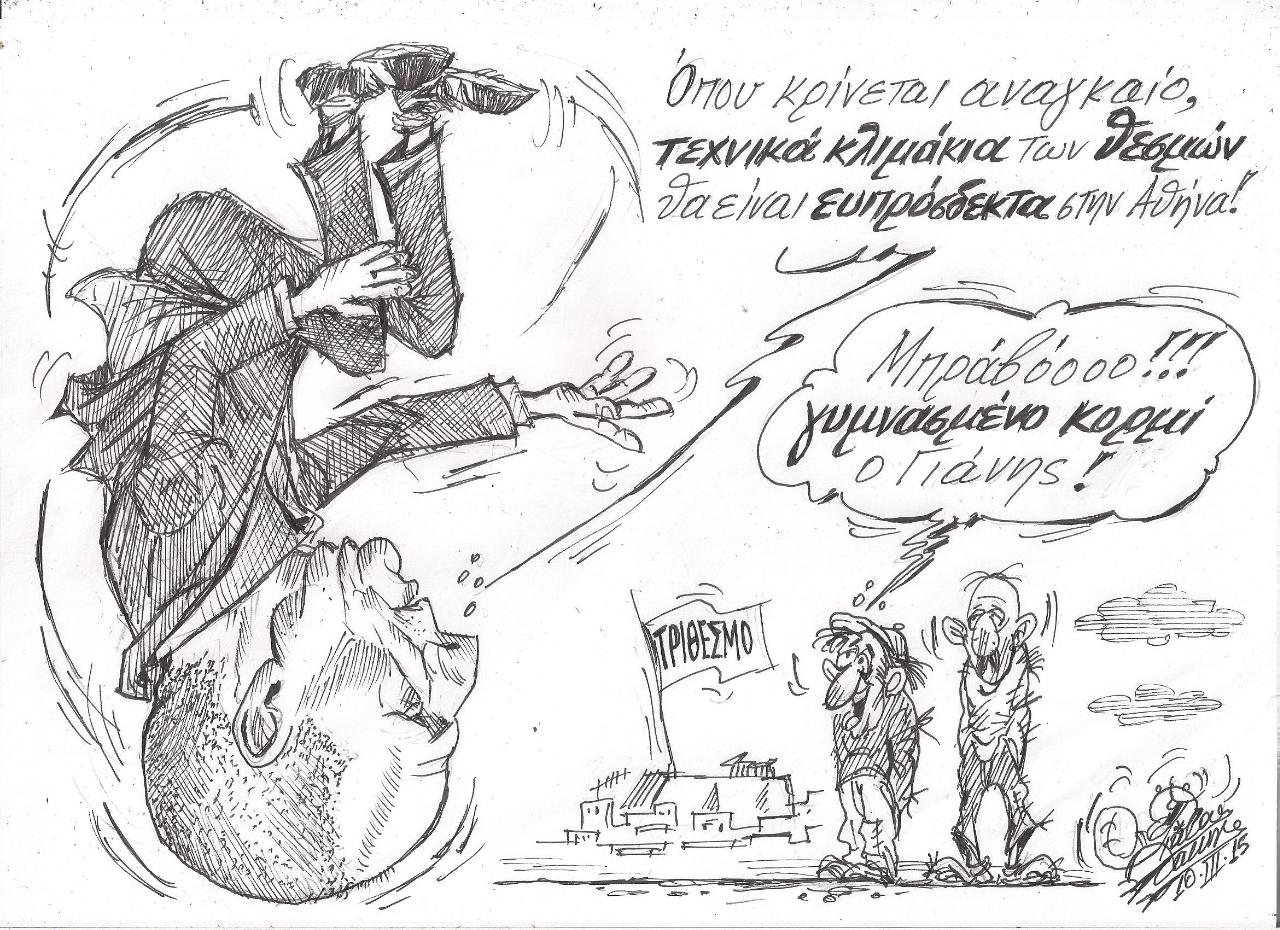 Όπου κρίνεται αναγκαίο,
τεχνικά κλιμάκια των θεσμών
θα είναι ευπρόσδεκτα στην Αθήνα!
Μπράβόοοο!!!
γυμνασμένο κορμί
ο Γιάνης!
ΤΡΙΘΕΣΜΟ
10.III.15